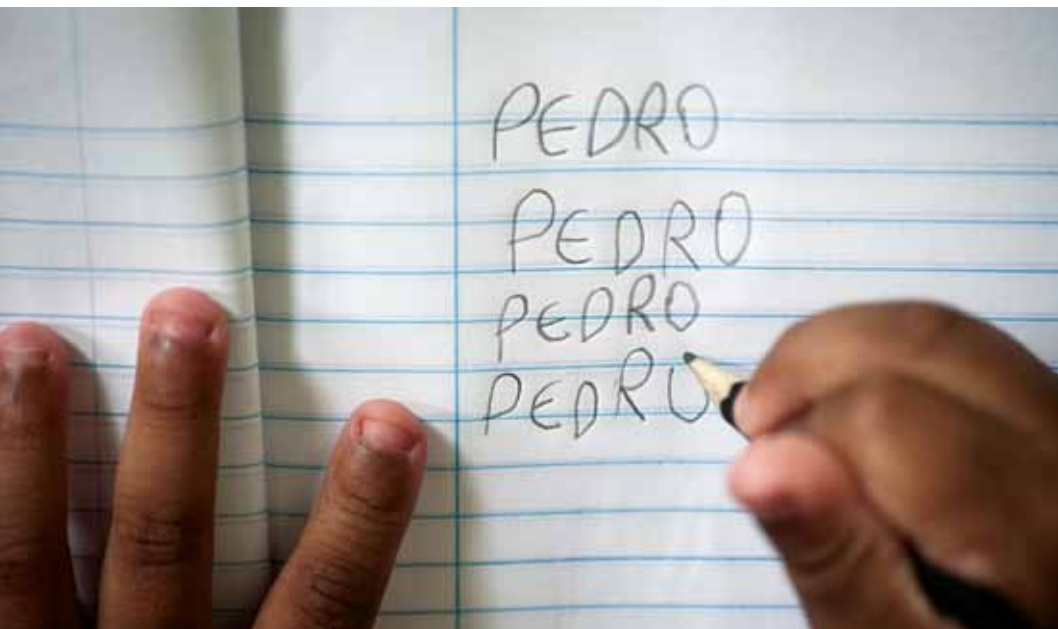 PEDRO
PEDRO
PEDRO
PEDRU